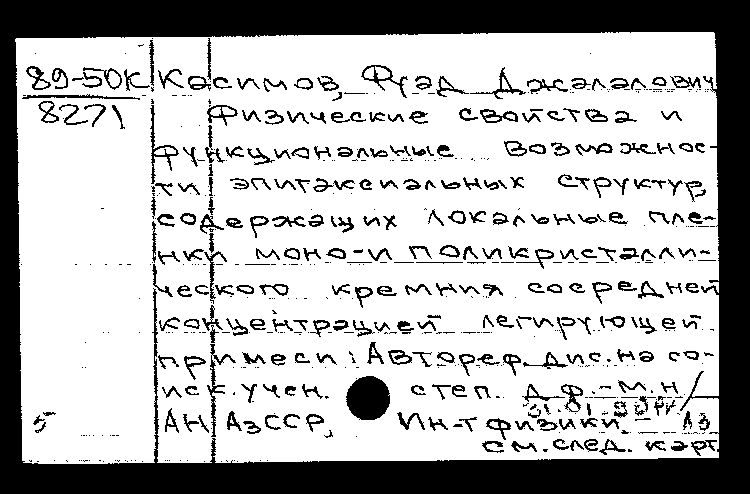 89-50К Касимов, Фуад Джалалович
8271 Физические свойства и
функциональные возможнос-
ти эпитаксиальных структур,
содержащих локальные пле-
нки моно- и поликристалли-
ческого кремния со средней
концентрацией легирующей
примеси: Автореф. дис. на со-
иск. учен. степ. д.ф.-м.н/
31.01.90
5 АН АзССР, Ин-т физики. - Аз
см. след. карт.